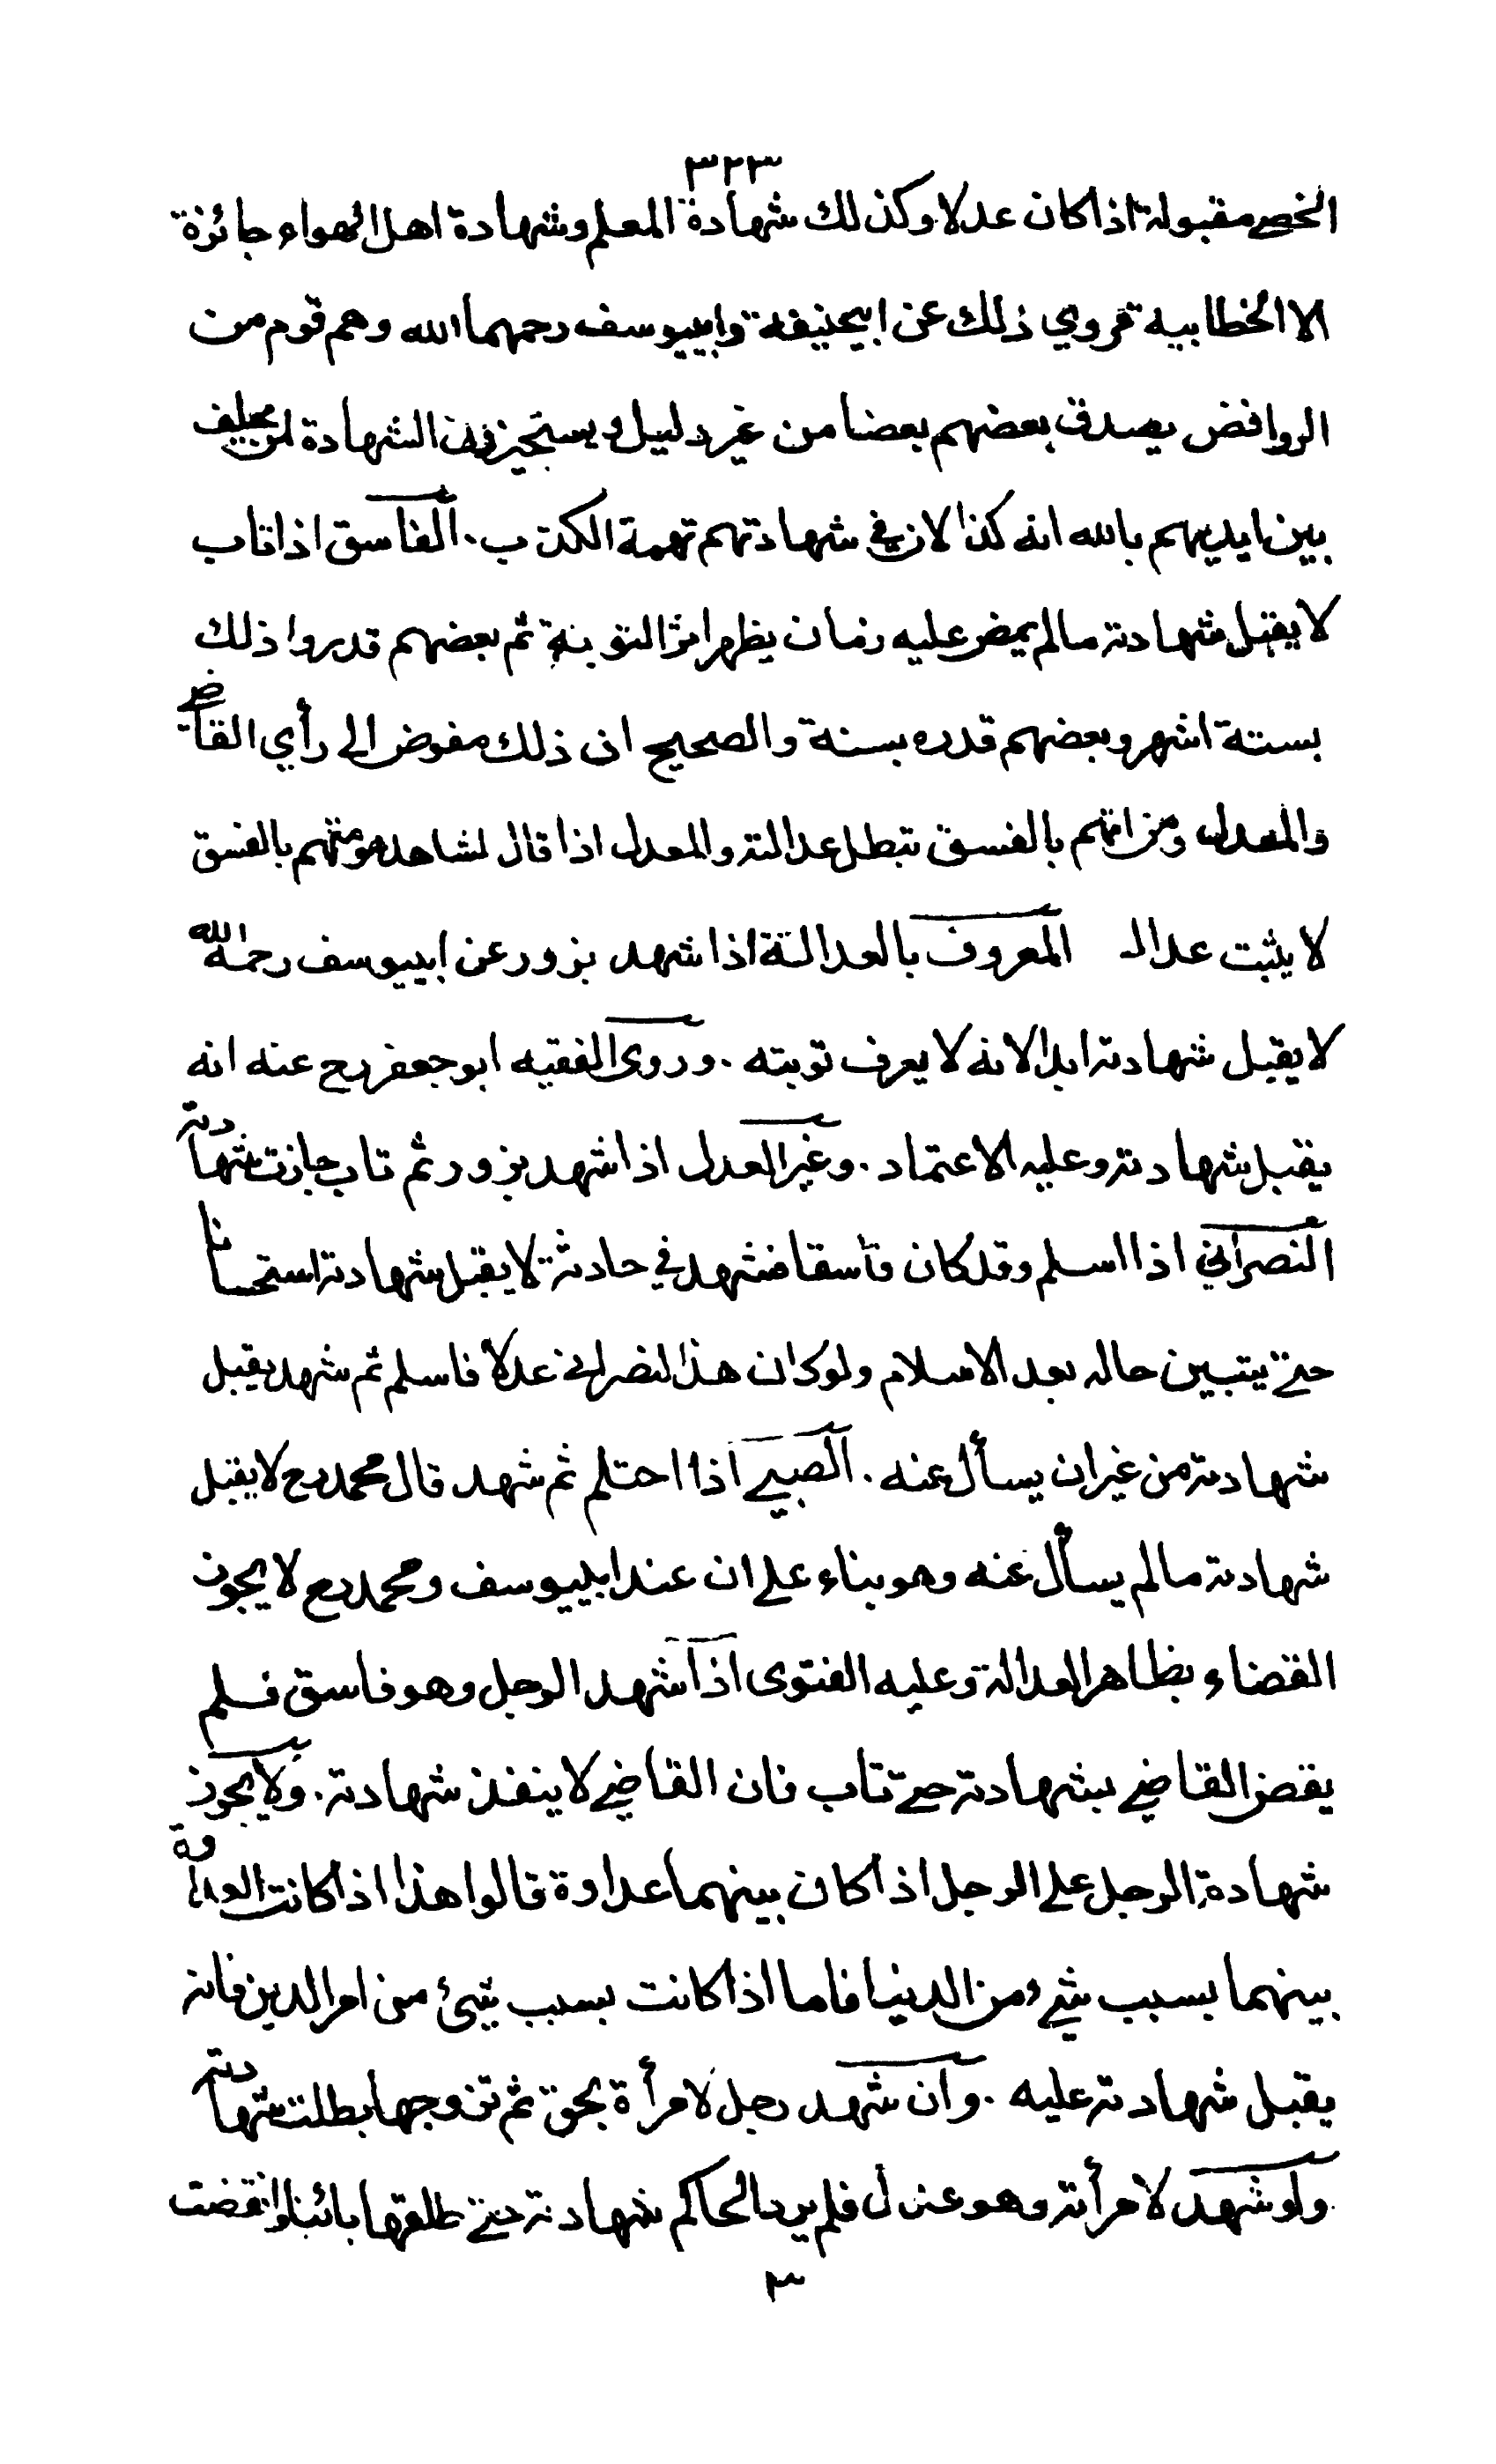 ٣٢٣
الخصي مقبولة اذا كان عدلا وكذلك شهادة المعلم وشهادة اهل الهواء جائزة
الا الخطابية مروي ذلك عن ابيحنيفة وابييوسف رحمهما الله وهم قوم من
الروافض يصدق بعضهم بعضا من غير دليل ويستجيزون الشهادة لمن يحلف
بين ايديهم بالله انه كذا لان في شهادتهم تهمة الكذب . الفاسق اذا تاب
لا يقبل شهادته مالم يمض عليه زمان يظهر اثر التوبة ثم بعضهم قدروا ذلك
بستة اشهر وبعضهم قدره بسنة والصحيح ان ذلك مفوض الى رأي القاضي
والمعدل ومن اتهم بالفسق تبطل عدالته والمعدل اذا قال لشاهد هو متهم بالفسق
لا يثبت عدالـ المعروف بالعدالة اذا شهد بزور عن ابييوسف رحمه الله
لا يقبل شهادته ابدا لانه لا يعرف توبته . وروى الفقيه ابو جعفر رح عنه انه
يقبل شهادته وعليه الاعتماد . وغير العدل اذا شهد بزور ثم تاب جازت شهادته
النصراني اذا اسلم وقد كان فاسقا فشهد في حادثة لا يقبل شهادته استحسانا
حتى يتبين حاله بعد الاسلام ولو كان هذا النصراني عدلا فاسلم ثم شهد يقبل
شهادته من غير ان يسأل عنه . الصبي اذا احتلم ثم شهد قال محمد رح لا يقبل
شهادته مالم يسأل عنه وهو بناء على ان عند ابييوسف ومحمد رح لا يجوز
القضاء بظاهر العدالة وعليه الفتوى اذا شهد الرجل وهو فاسق فلم
يقض القاضي بشهادته حتى تاب فان القاضي لا ينفذ شهادته . ولا يجوز
شهادة الرجل على الرجل اذا كان بينهما عداوة قالوا هذا اذا كانت العداوة
بينهما بسبب شيء من الدنيا فاما اذا كانت بسبب شيئ من امر الدين فانه
يقبل شهادته عليه . وان شهد رجل لامرأة بحق ثم تزوجها بطلت شهادته
ولو شهد لامرأته وهو عدل فلم يرد الحاكم شهادته حتى طلقها بائنا وانقضت
٣